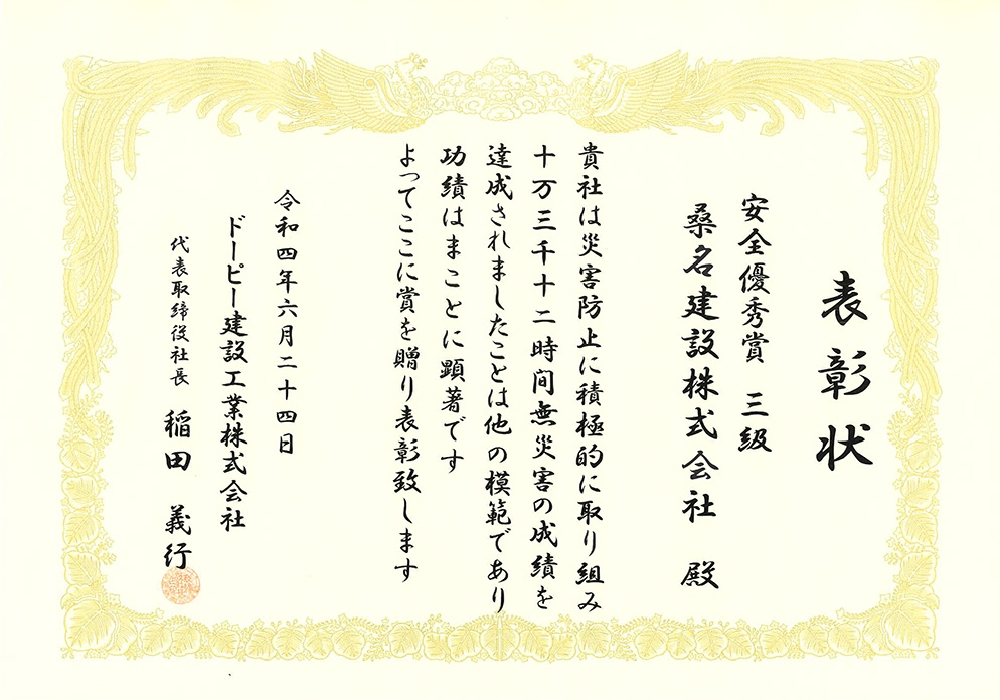 表彰状
安全優秀賞 三級
桑名建設株式会社 殿
貴社は災害防止に積極的に取り組み
十万三千十二時間無災害の成績を
達成されましたことは他の模範であり
功績はまことに顕著です
よってここに賞を贈り表彰致します
令和四年六月二十四日
ドーピー建設工業株式会社
代表取締役社長 稲田 義行